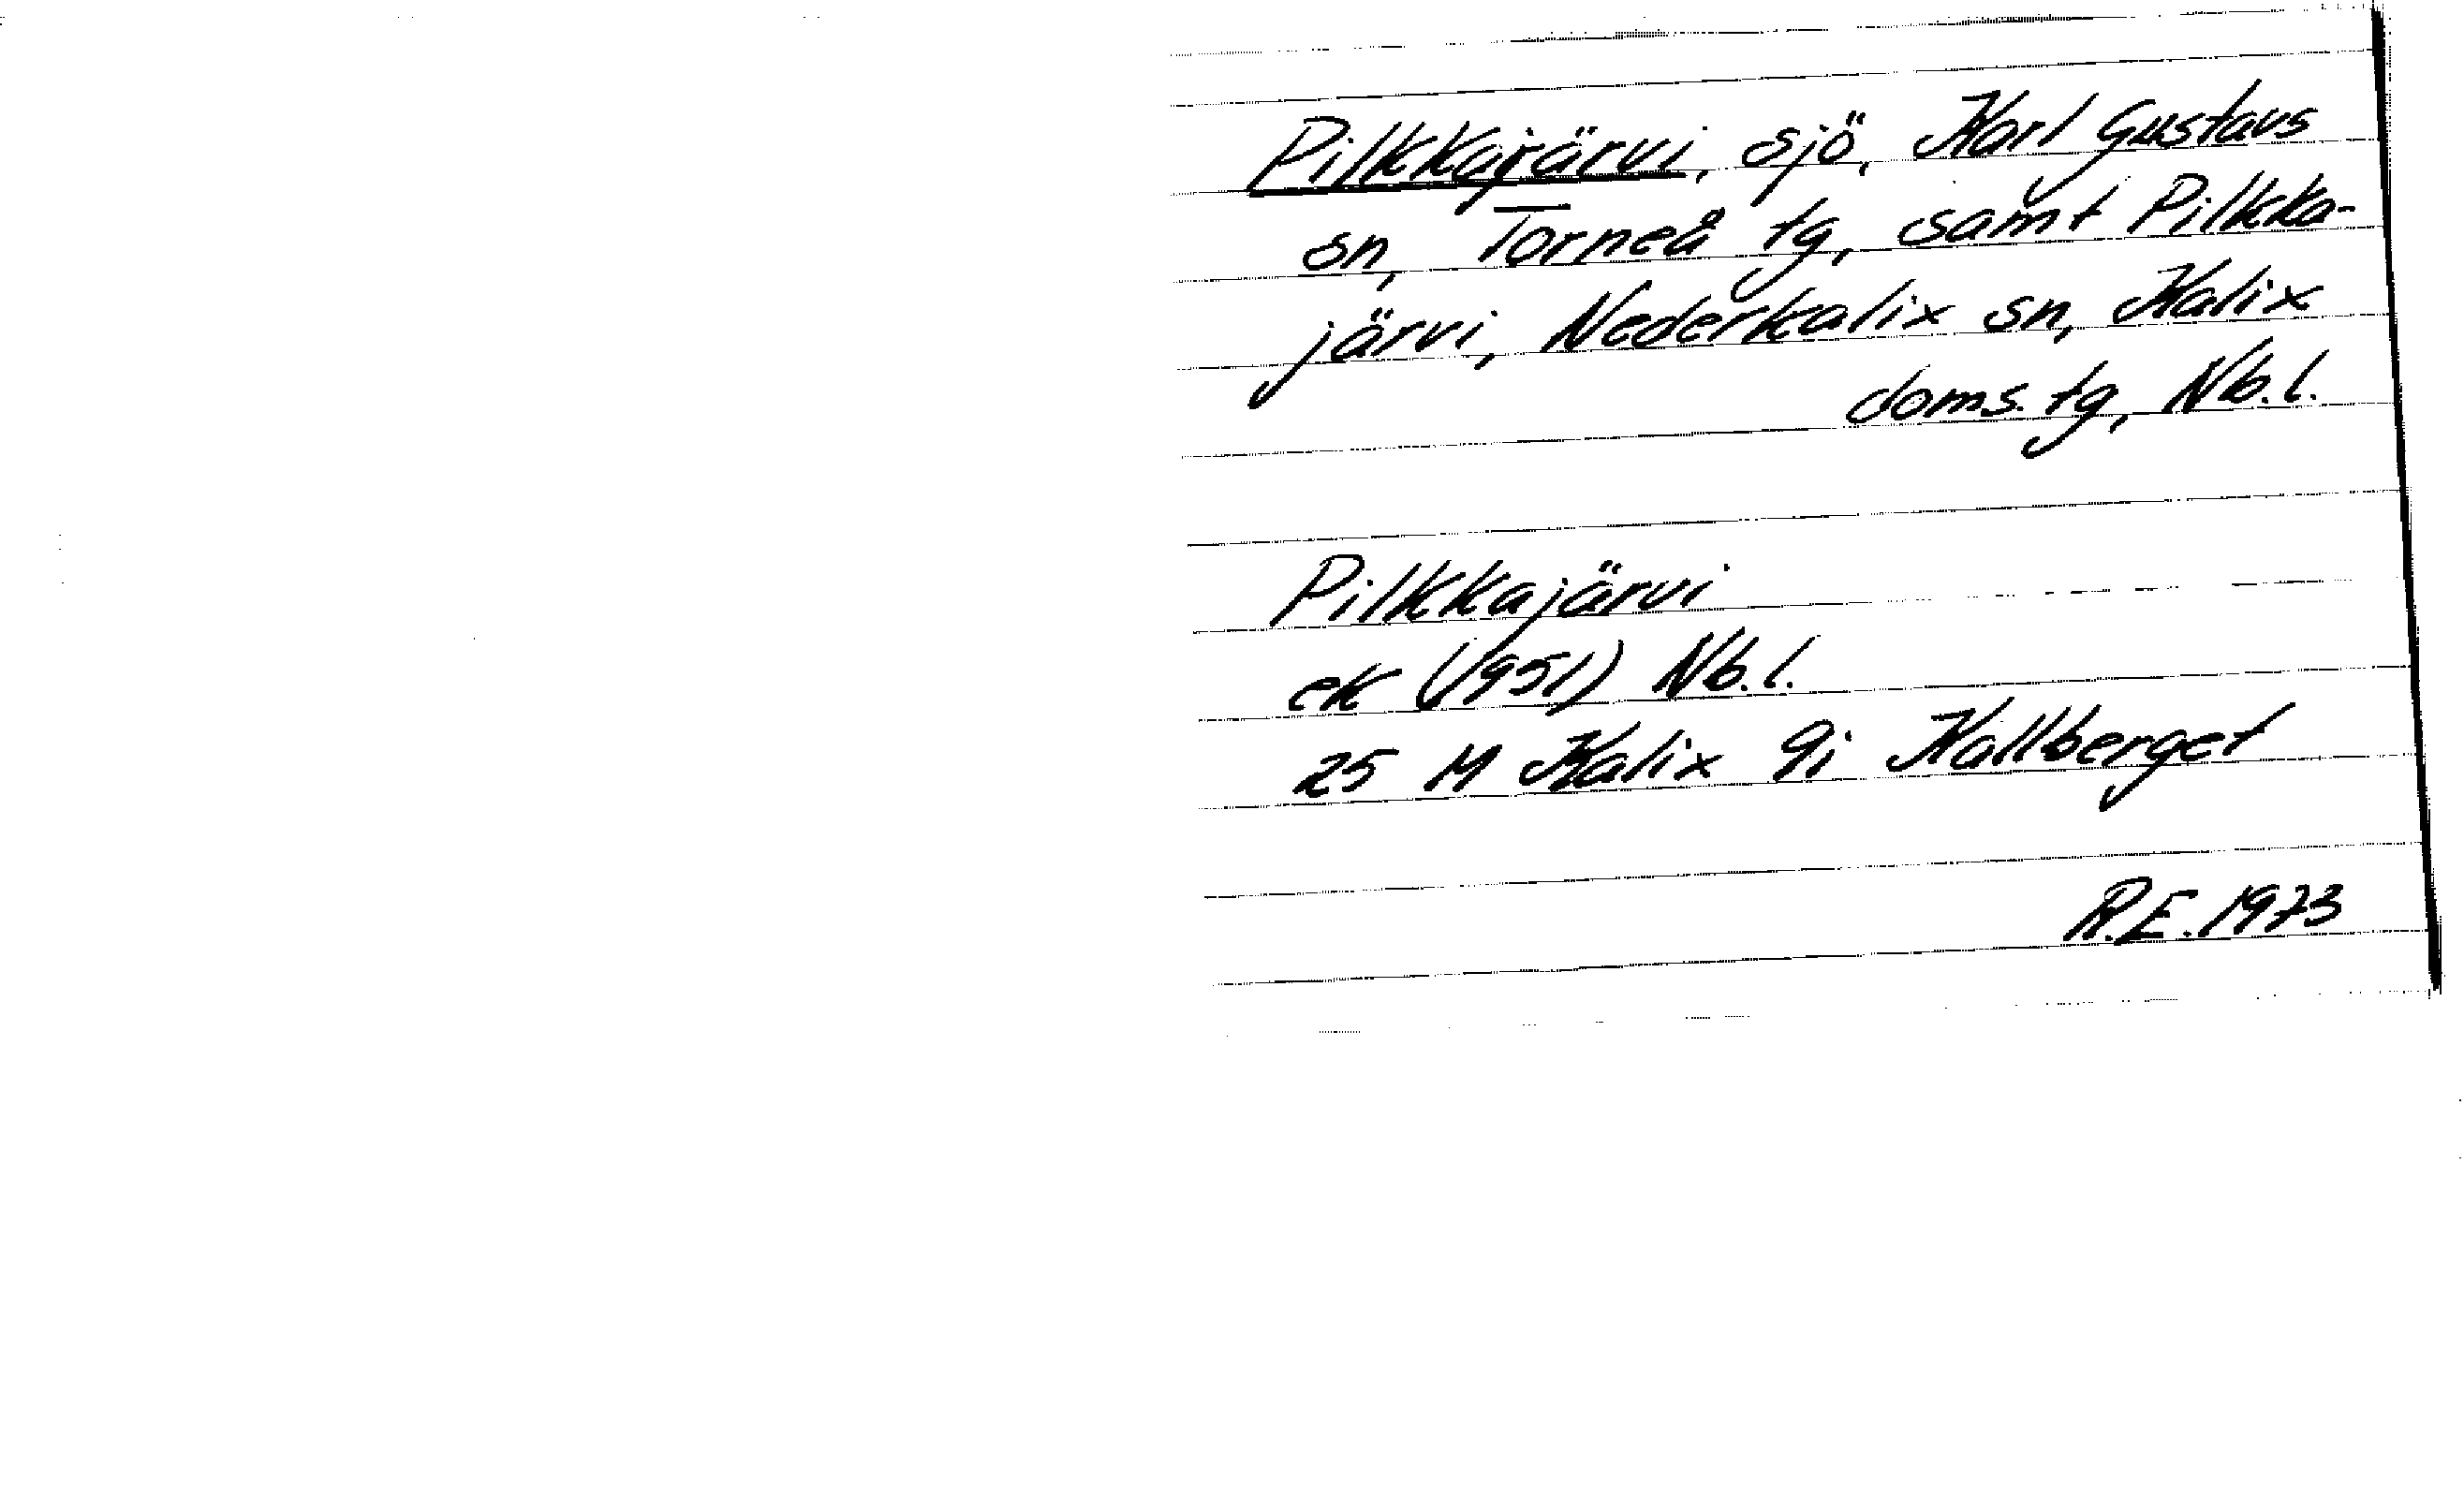 Pilkkajärvi, sjö, Karl Gustavs
sn, Torneå tg, samt Pilkka-
järvi, Nederkalix sn, Kalix
doms. tg, Nb.l.
Pilkkajärvi
ek (1951) Nb.l.
25 M Kalix 9i Kallberget
R.E. 1973